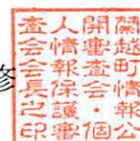 蘭越町情報公
開審査会・個
人情報保護審
査会会長之印
修